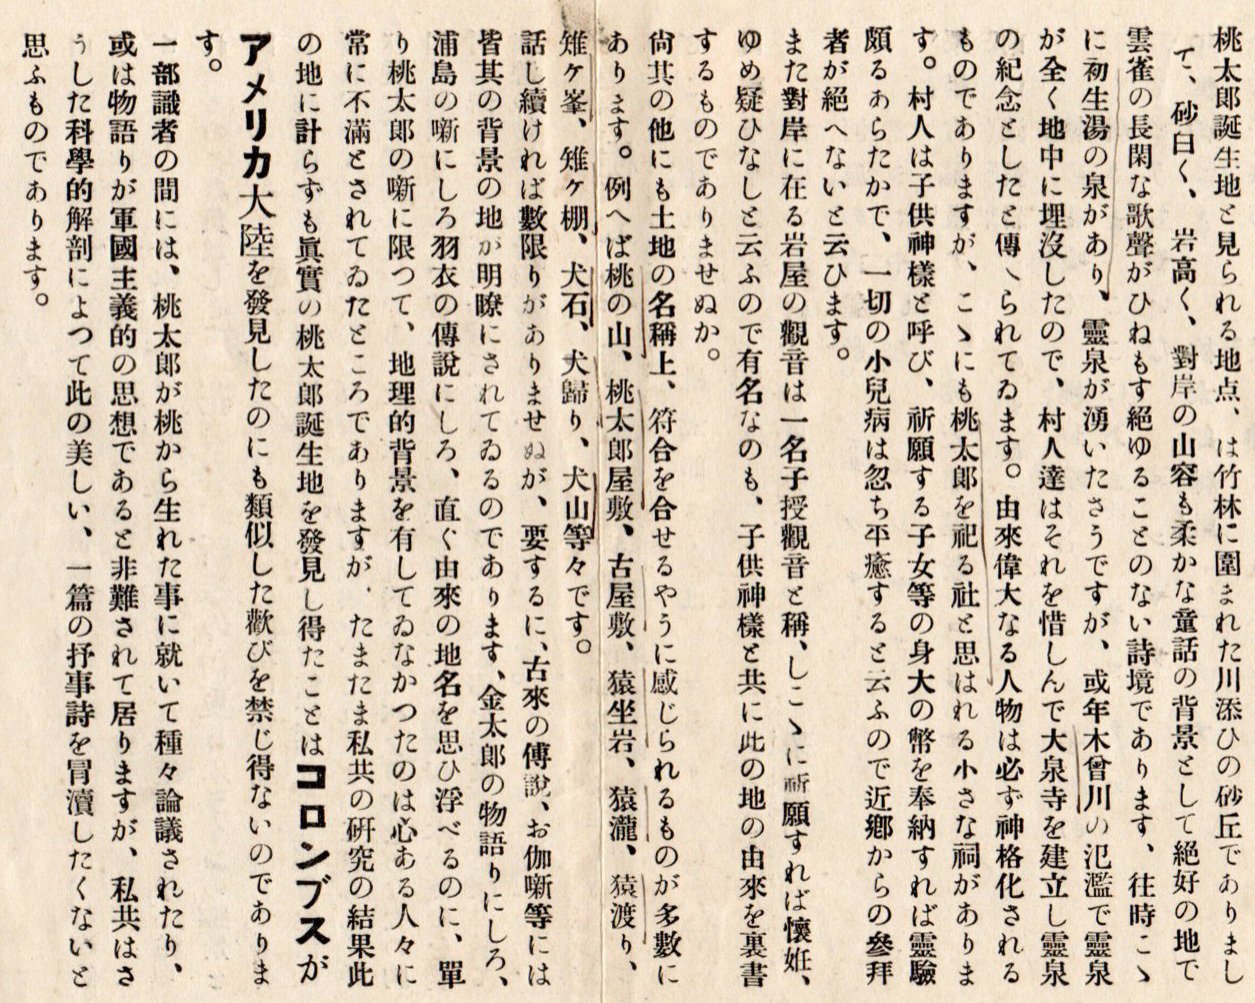 桃太郎誕生地と見られる地点、は竹林に圍まれた川添ひの砂丘でありまし
て、砂白く、岩高く、對岸の山容も柔かな童話の背景として絶好の地で
雲雀の長閑な歌聲がひねもす絶ゆることのない詩境であります、往時こゝ
に初生湯の泉があり、靈泉が湧いたさうですが、或年木曾川の氾濫で靈泉
が全く地中に埋沒したので、村人達はそれを惜しんで大泉寺を建立し靈泉
の紀念としたと傳へられてゐます。由來偉大なる人物は必ず神格化される
ものでありますが、こゝにも桃太郎を祀る社と思はれる小さな祠がありま
す。村人は子供神樣と呼び、祈願する子女等の身大の幣を奉納すれば靈驗
頗るあらたかで、一切の小兒病は忽ち平癒すると云ふので近鄕からの參拜
者が絶へないと云ひます。
また對岸に在る岩屋の觀音は一名子授觀音と稱、しこゝに祈願すれば懷妊、
ゆめ疑ひなしと云ふので有名なのも、子供神樣と共に此の地の由來を裏書
するものでありませぬか。
尙其の他にも土地の名稱上、符合を合せるやうに感じられるものが多數に
あります。例へば桃の山、桃太郎屋敷、古屋敷、猿坐岩、猿瀧、猿渡り、
雉ヶ峯、雉ヶ棚、犬石、犬歸り、犬山等々です。
話し續ければ數限りがありませぬが、要するに、古來の傳說、お伽噺等には
皆其の背景の地が明瞭にされてゐるのであります、金太郎の物語りにしろ、
浦島の噺にしろ羽衣の傳說にしろ、直ぐ由來の地名を思ひ浮べるのに、單
り桃太郎の噺に限つて、地理的背景を有してゐなかつたのは心ある人々に
常に不滿とされてゐたところでありますが、たまたま私共の研究の結果此
の地に計らずも眞實の桃太郎誕生地を發見し得たことはコロンブスが
アメリカ大陸を發見したのにも類似した歡びを禁じ得ないのでありま
す。
一部識者の間には、桃太郎が桃から生れた事に就いて種々論議されたり、
或は物語りが軍國主義的の思想であると非難されて居りますが、私共はさ
うした科學的解剖によつて此の美しい、一篇の抒事詩を冒瀆したくないと
思ふものであります。